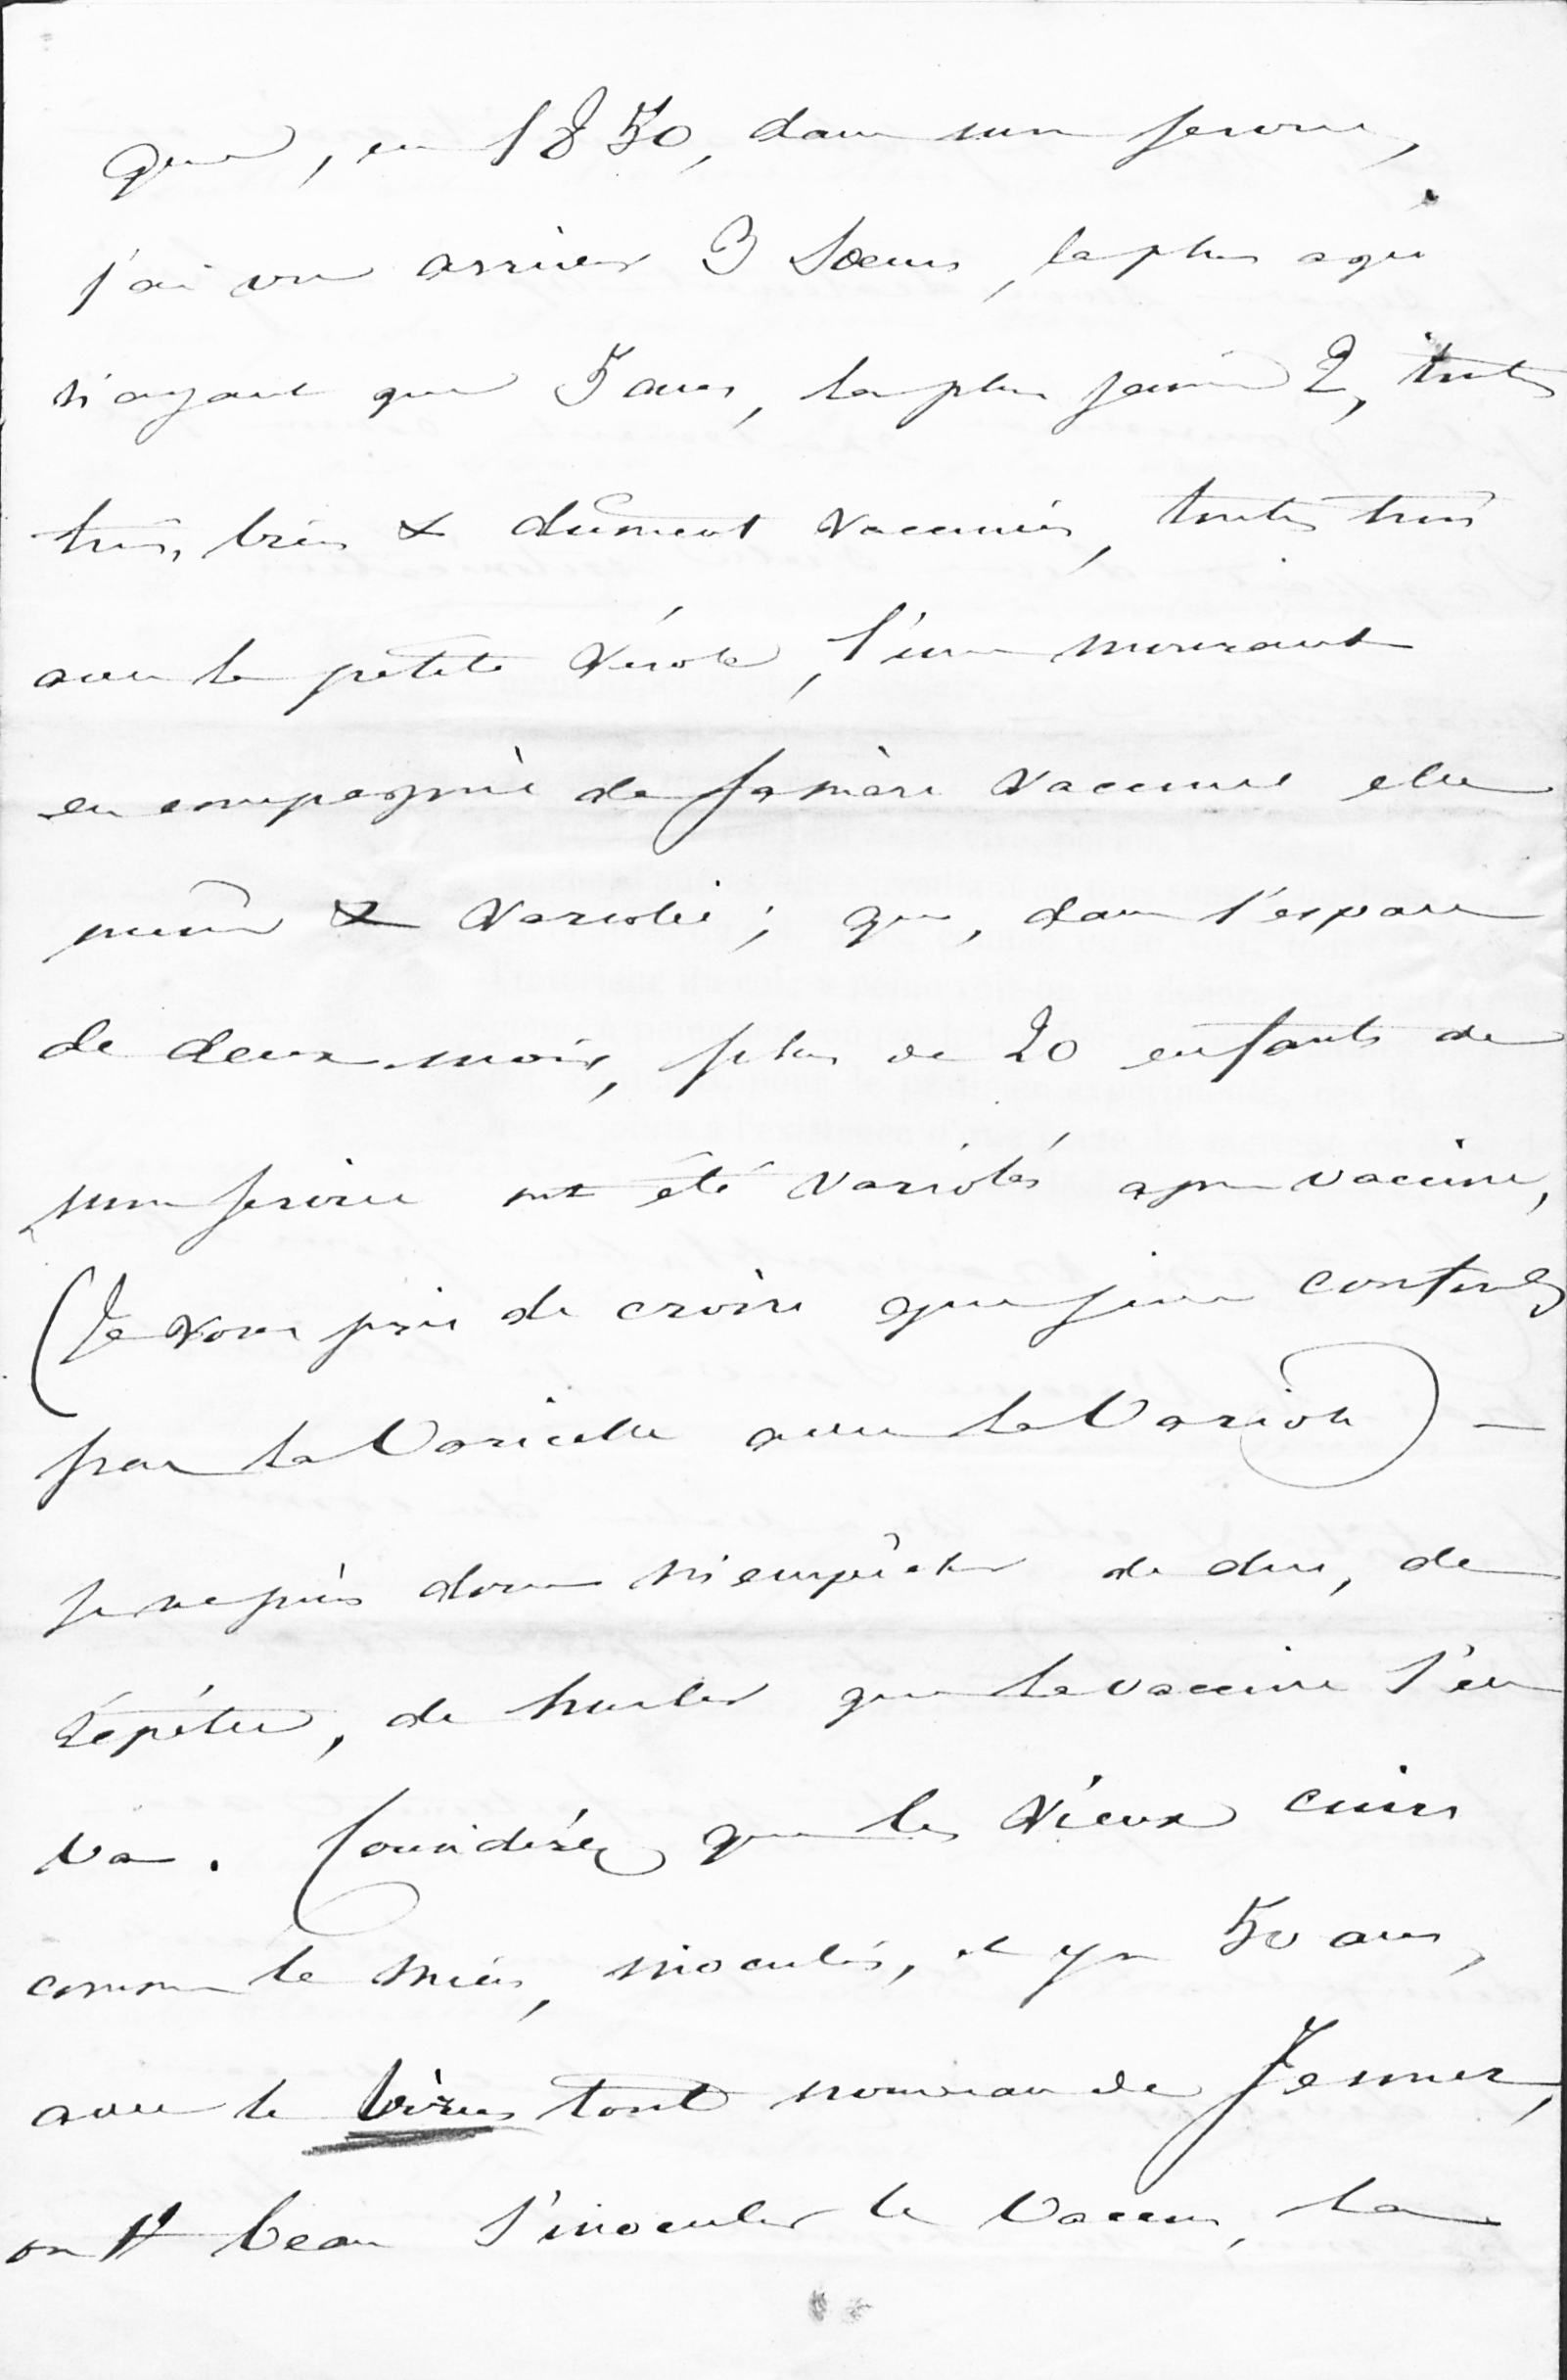 que, en 1850, dans mon service,
j'ai vu arriver 3 Sœurs, la plus agée
n'ayant que 5 ans, la plus jeune 2, toutes
trois, bien & dûment vaccinées, toutes trois
avec la petite Vérole, l'une mourant
en compagnie de sa mère vaccinée elle
même & Variolée ; que, dans l'espace
de deux mois, plus de 20 enfants de
mon service ont été variolés après vaccine,
(Je vous prie de croire que je ne confonds
pas la Varicelle avec la Variole) —
je ne puis donc m'empêcher de dire, de
répéter, de hurler que la vaccine s'en
va. Considérez que les vieux cuirs
comme le mien, inoculés, il y a 50 ans,
avec le virus tout nouveau de Jenner,
ont beau s'inoculer le Vaccin, la